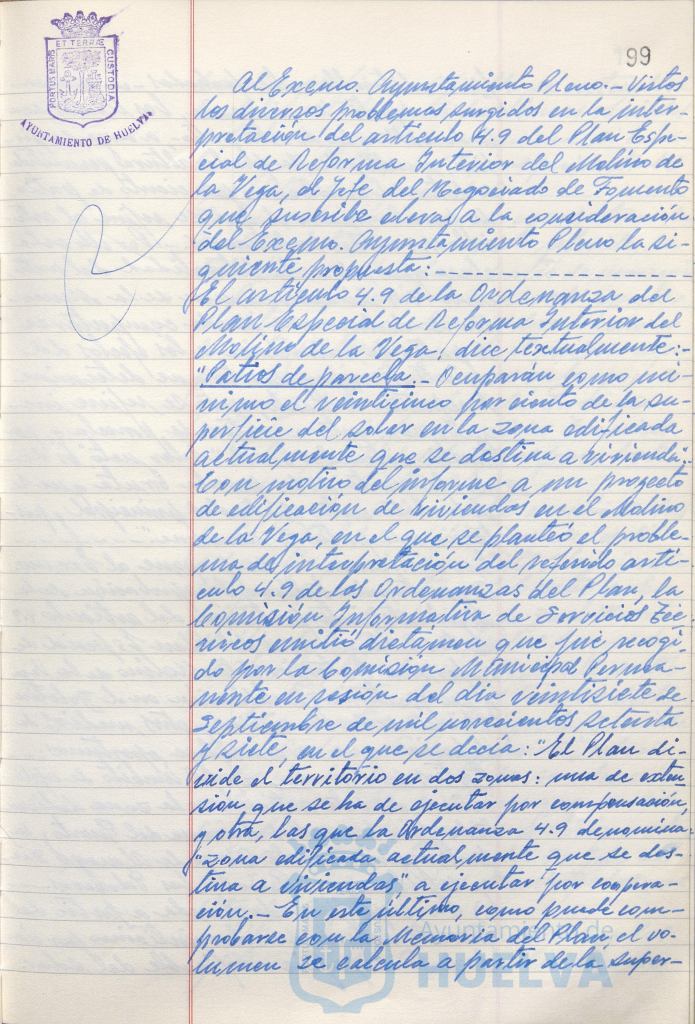 99
PORTUS MARIS ET TERRAE CUSTODIA
AYUNTAMIENTO DE HUELVA
Al Excmo. Ayuntamiento Pleno.- Vistos
los diversos problemas surgidos en la inter-
pretación del articulo 4.9 del Plan Espe-
cial de Reforma Interior del Molino de
la Vega, el Jefe del Negociado de Fomento
que suscribe eleva a la consideración
del Excmo. Ayuntamiento Pleno la si-
guiente propuesta:-
El articulo 4.9 de la Ordenanza del
Plan Especial de Reforma Interior del
Molino de la Vega, dice textualmente:-
"Patios de parcela.- Ocuparán como mi-
nimo el veinticinco por ciento de la su-
perficie del solar en la zona edificada
actualmente que se destina a vivienda.
Con motivo del informe a un proyecto
de edificación de viviendas en el Molino
de la Vega, en el que se planteó el proble-
ma de interpretación del referido arti-
culo 4.9 de las Ordenanzas del Plan, la
Comisión Informativa de Servicios Téc-
nicos emitió dictámen que fue recogi-
do por la Comisión Municipal Perma-
nente en sesión del dia veintisiete de
Septiembre de mil novecientos setenta
y siete, en el que se decía: "El Plan di-
vide el territorio en dos zonas: una de exten-
sión que se ha de ejecutar por compensación,
y otra, las que la Ordenanza 4.9 denomina
"zona edificada actualmente que se des-
tina a viviendas" a ejecutar por coopera-
ción.- En este último, como puede com-
probarse con la Memoria del Plan, el vo-
lumen se calcula a partir de la super-
Ayuntamiento de
HUELVA